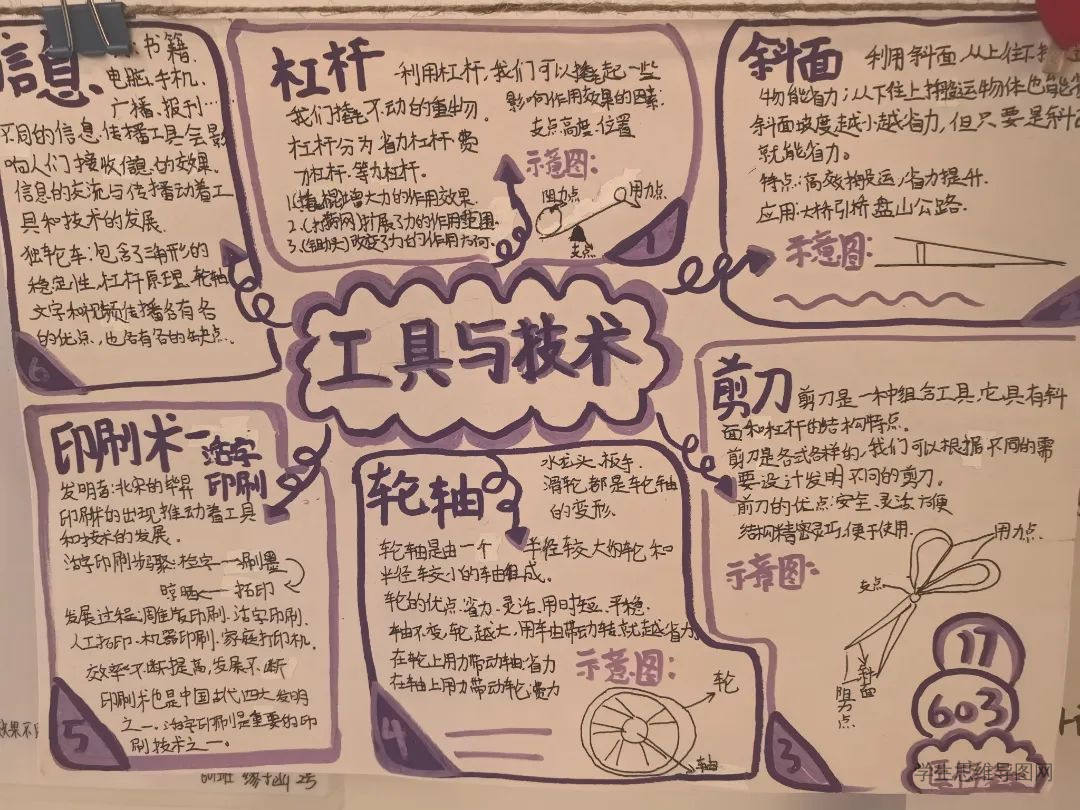 工具与技术
杠杆
利用杠杆,我们可以撬起一些
我们撬不动的重物.
杠杆分为省力杠杆.费
力杠杆.等力杠杆.
1.(撬棍)增大力的作用效果.
2.(打药网)扩展了力的作用范围.
3.(组块)改变了力的作用方向.
影响作用效果的因素:
支点高度.位置
示意图:
阻力点
用力点
支点
1
斜面
利用斜面,从上往下
物能省力;从下往上搬运物体也能
斜面坡度越小越省力,但只要是斜
就能省力。
特点:高效搬运,省力提升.
应用:大桥引桥.盘山公路.
示意图:
2
剪刀
剪刀是一种组合工具,它具有斜
面和杠杆的结构特点。
剪刀是各式各样的,我们可以根据不同的需
要设计发明不同的剪刀。
剪刀的优点:安全、灵活、方便
结构精密灵巧,便于使用.
示意图:
用力点
支点
斜面
阻力点
3
17
603
轮轴
水龙头.扳手.
滑轮.都是车轮轴
的变形.
轮轴是由一个半径较大的轮和
半径较小的车由组成。
轮的优点:省力、灵活、用时短、平稳.
轴不变,轮越大,用车由带动转就越省力
在轮上用力带动轴:省力
在轴上用力带动轮:费力
示意图:
轮
轴
4
印刷术-活字
印刷
发明者:北宋的毕昇
印刷术的出现推动着工具
和技术的发展.
活字印刷步骤:检字→刷墨
晾晒←拓印
发展过程:雕版印刷.活字印刷.
人工拓印.机器印刷.家庭打印机.
效率不断提高,发展不断
印刷术也是中国古代四大发明
之一.活字印刷是重要的印
刷技术之一。
5
信息
书籍.
电脑.手机.
广播.报刊…
不同的信息.传播工具会影
响人们接收信息的效果.
信息的交流与传播动着工
具和技术的发展.
独轮车:包含了三角形的
稳定性.杠杆原理.轮轴
文字和视频传播各有各
的优点,也各有各的缺点.
6
效果不同
601班
2号
学生思维导图网